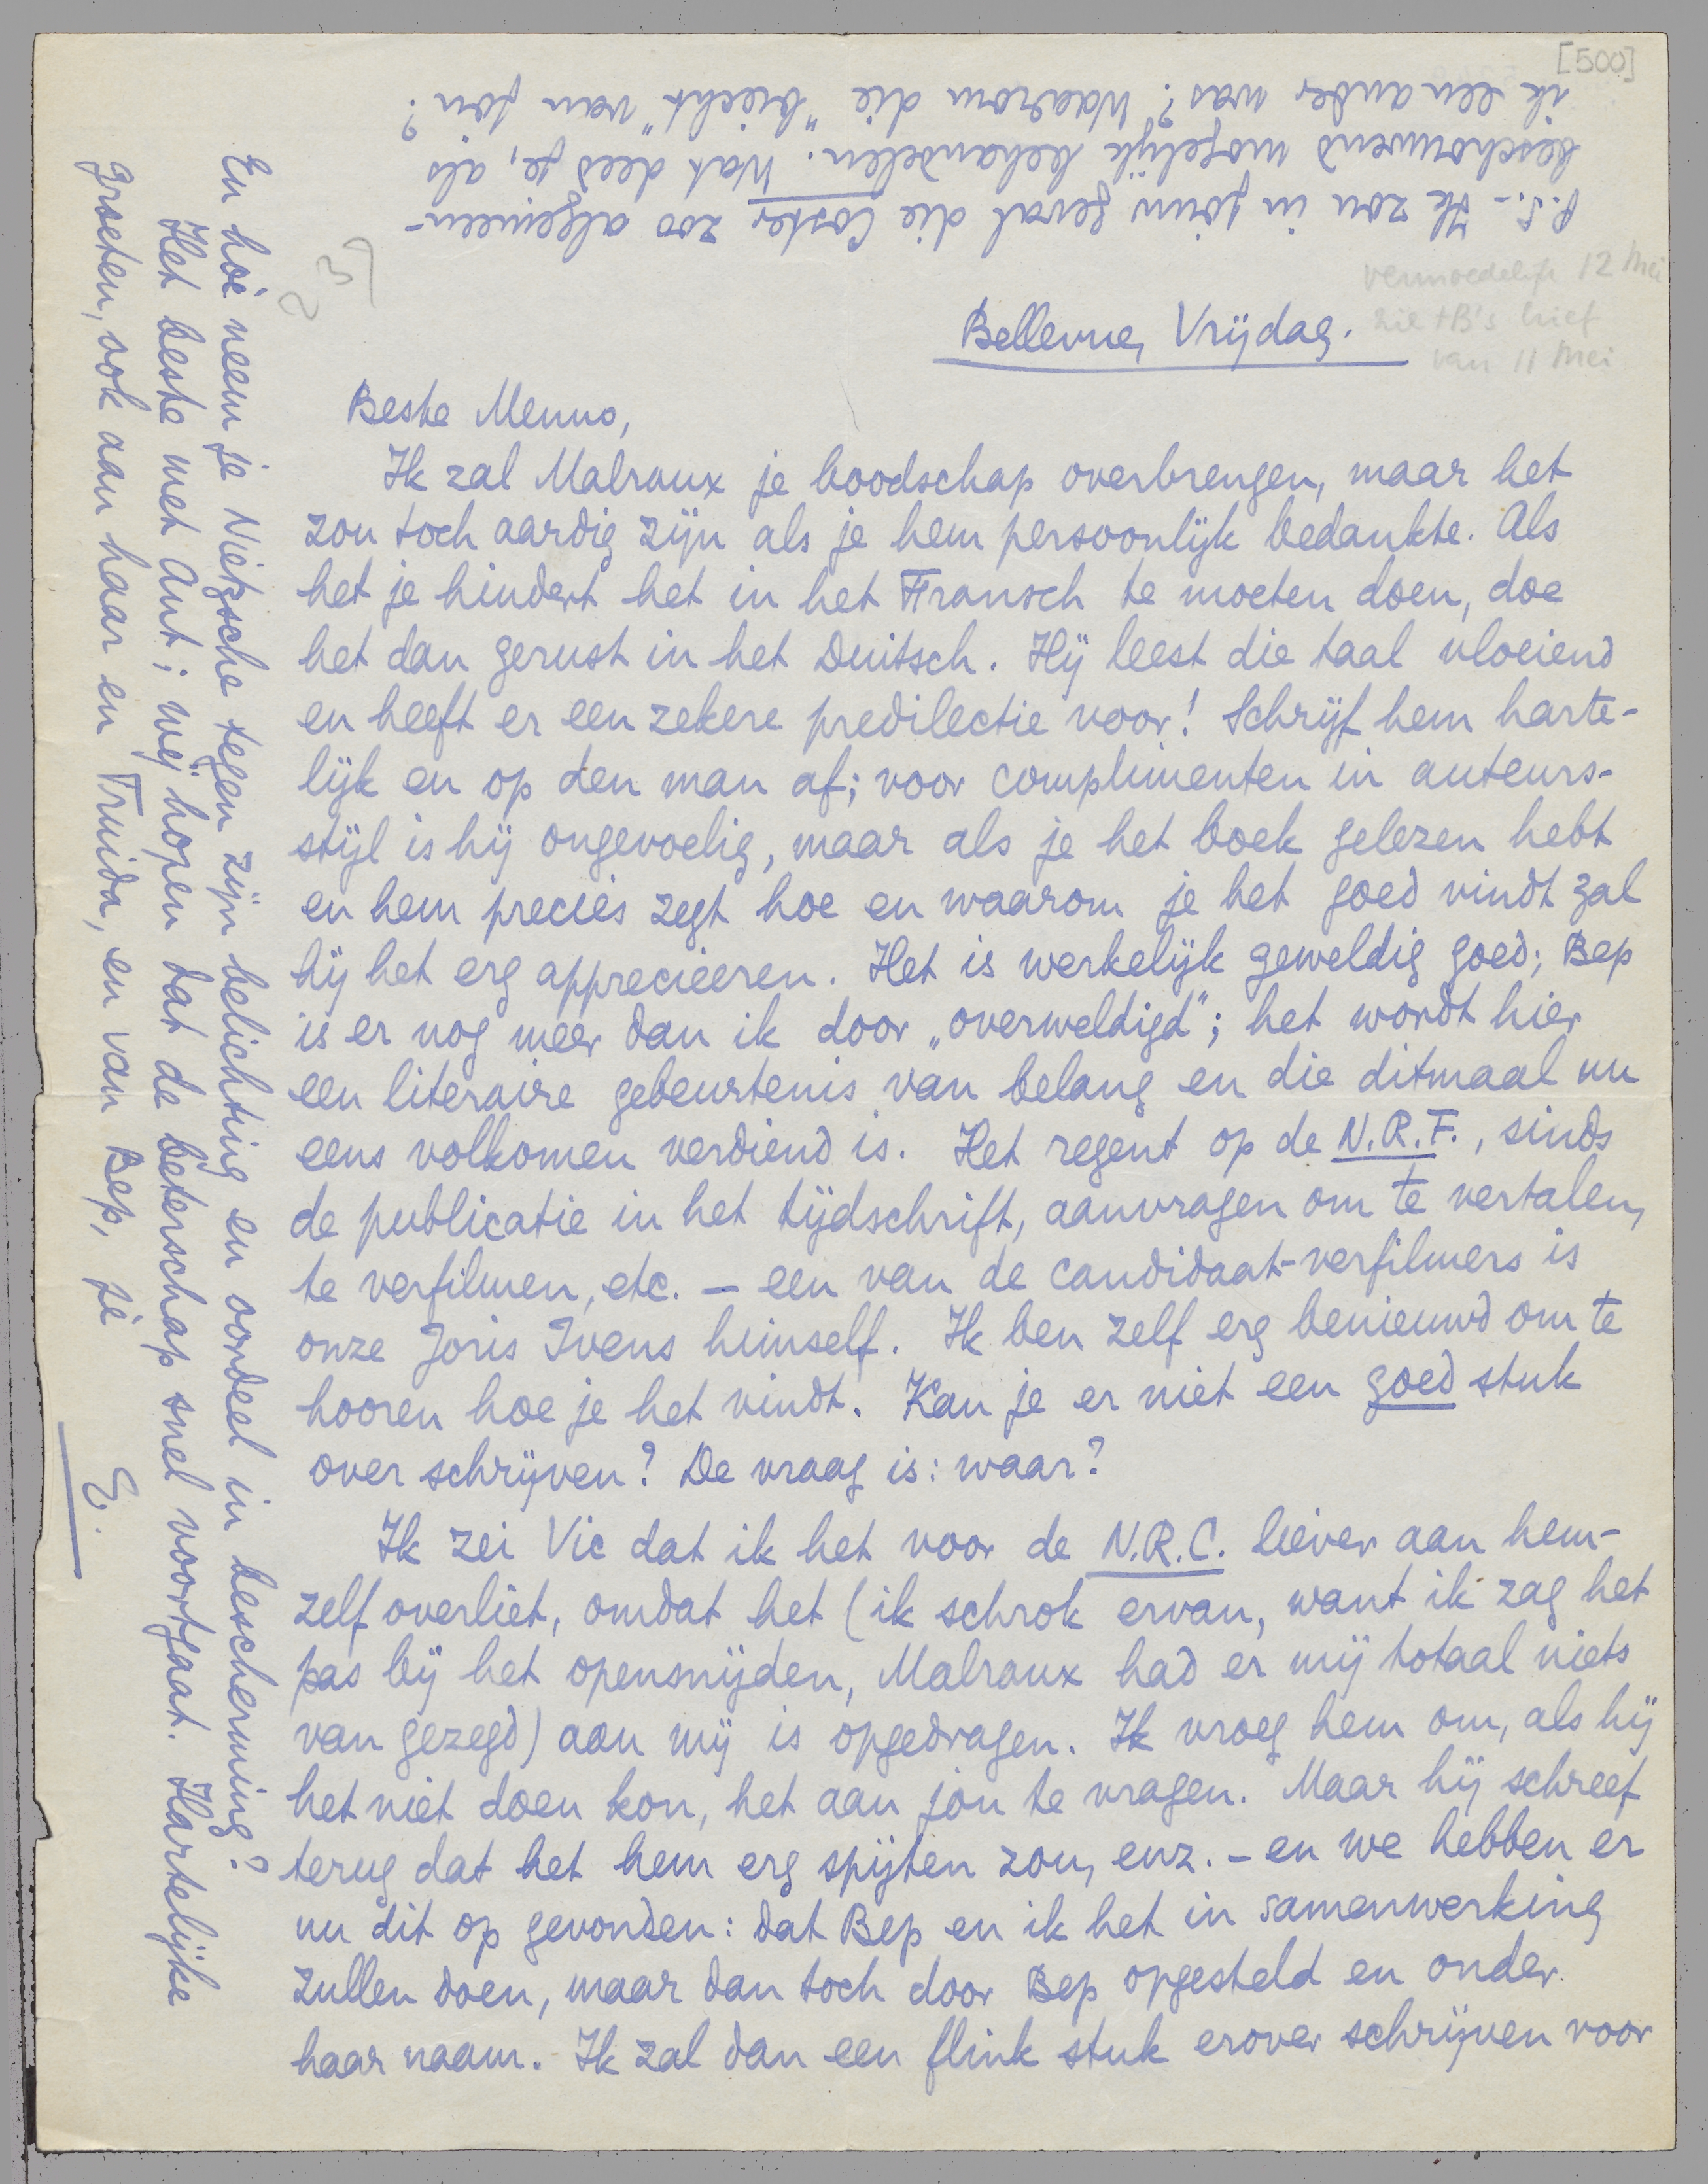 [500]
vermoedelijk 12 Mei
zie tB's brief
van 11 Mei
Bellevue, Vrijdag.
Beste Menno,
Ik zal Malraux je boodschap overbrengen, maar het
zou toch aardig zijn als je hem persoonlijk bedankte. Als
het je hindert het in het Fransch te moeten doen, doe
het dan gerust in het Duitsch. Hij leest die taal vloeiend
en heeft er een zekere predilectie voor! Schrijf hem harte-
lijk en op den man af; voor complimenten in auteurs-
stijl is hij ongevoelig, maar als je het boek gelezen hebt
en hem precies zegt hoe en waarom je het goed vindt zal
hij het erg apprecieeren. Het is werkelijk geweldig goed; Bep
is er nog meer dan ik door „overweldigd"; het wordt hier
een literaire gebeurtenis van belang en die ditmaal nu
eens volkomen verdiend is. Het regent op de N.R.F., sinds
de publicatie in het tijdschrift, aanvragen om te vertalen,
te verfilmen, etc. – een van de candidaat-verfilmers is
onze Joris Ivens himself. Ik ben zelf erg benieuwd om te
hooren hoe je het vindt. Kan je er niet een goed stuk
over schrijven? De vraag is: waar?
Ik zei Vic dat ik het voor de N.R.C. liever aan hem-
zelf overliet, omdat het (ik schrok ervan, want ik zag het
pas bij het opensnijden, Malraux had er mij totaal niets
van gezegd) aan mij is opgedragen. Ik vroeg hem om, als hij
het niet doen kon, het aan jou te vragen. Maar hij schreef
terug dat het hem erg spijten zou, enz. – en we hebben er
nu dit op gevonden: dat Bep en ik het in samenwerking
zullen doen, maar dan toch door Bep opgesteld en onder
haar naam. Ik zal dan een flink stuk erover schrijven voor
En hoe neem je Nietzsche tegen zijn belichting en oordeel in bescherming?
Het beste met Ant; wij hopen dat de beterschap snel voortgaat. Hartelijke
groeten, ook aan haar en Truida, en van Bep, je
E.
P.S. – Ik zou in jouw geval die Coster zoo algemeen-
beschouwend mogelijk behandelen. Wat deed je, als
ik een ander was? Waarom die „biecht" van jou?